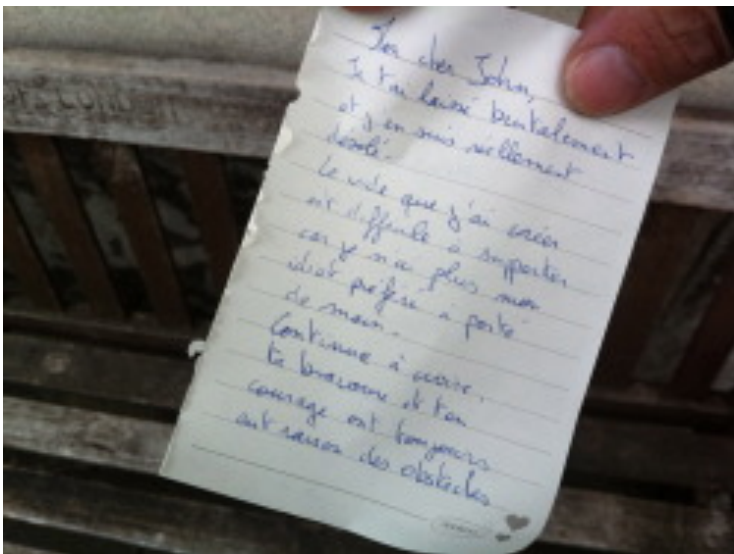 LONDON
Mon cher John,
Je t'ai laissé brutalement
et j'en suis réellement
désolé.
Le vide que j'ai créer
est difficile a supporter
car je n'ai plus mon
idiot préféré a porté
de main.
Continue à croire.
Ta bravoure et ton
courage ont toujours
eut raison des obstacles